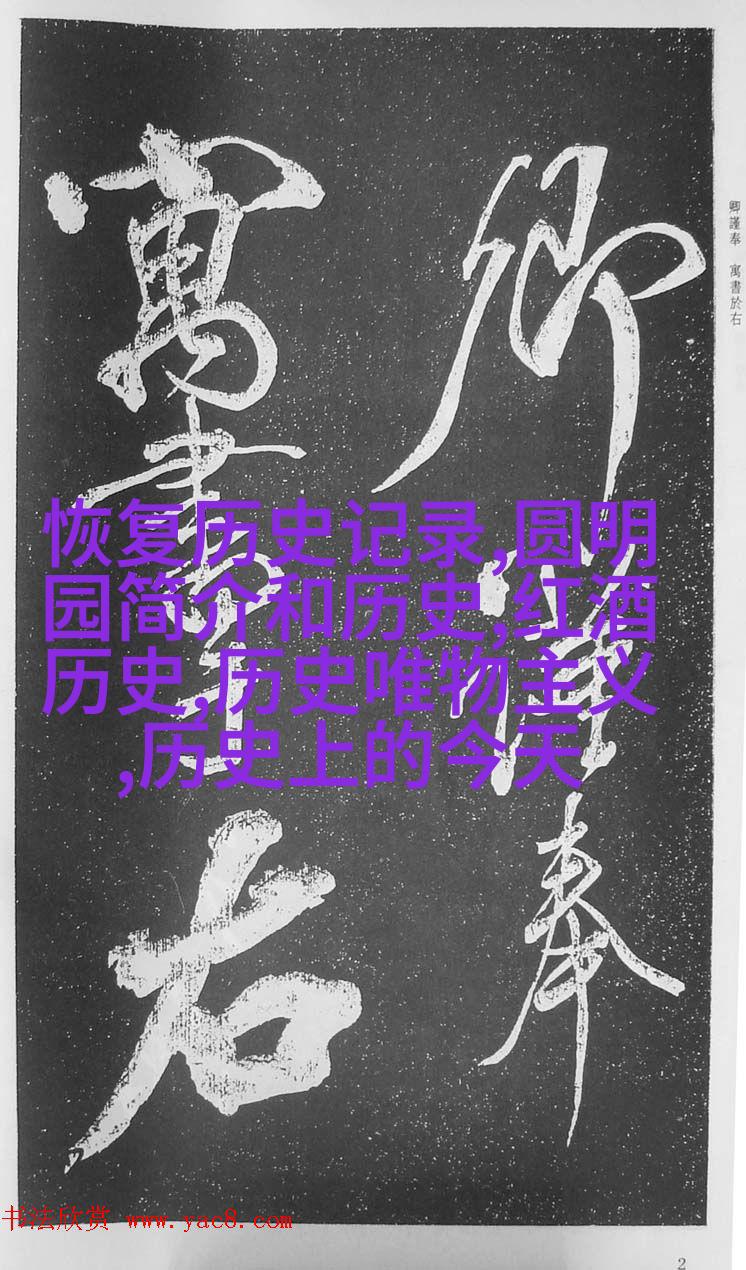 卿謹奉
寓書於右
卿謹奉　寓書於右
恢复历史记录,圆明
园简介和历史,红酒
历史,历史唯物主义
,历史上的今天
书法欣赏 www.yac8.com
2